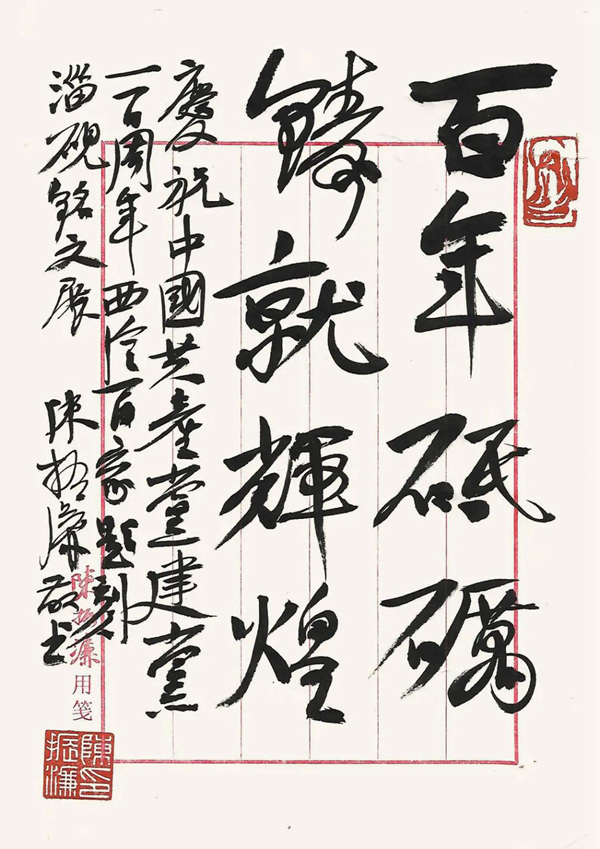 百年砥礪
鑄就輝煌
慶祝中國共產黨建黨
一百周年西泠百家題刻
淄硯銘文展
陳振濂敬書
陳振濂用笺
陳振濂印